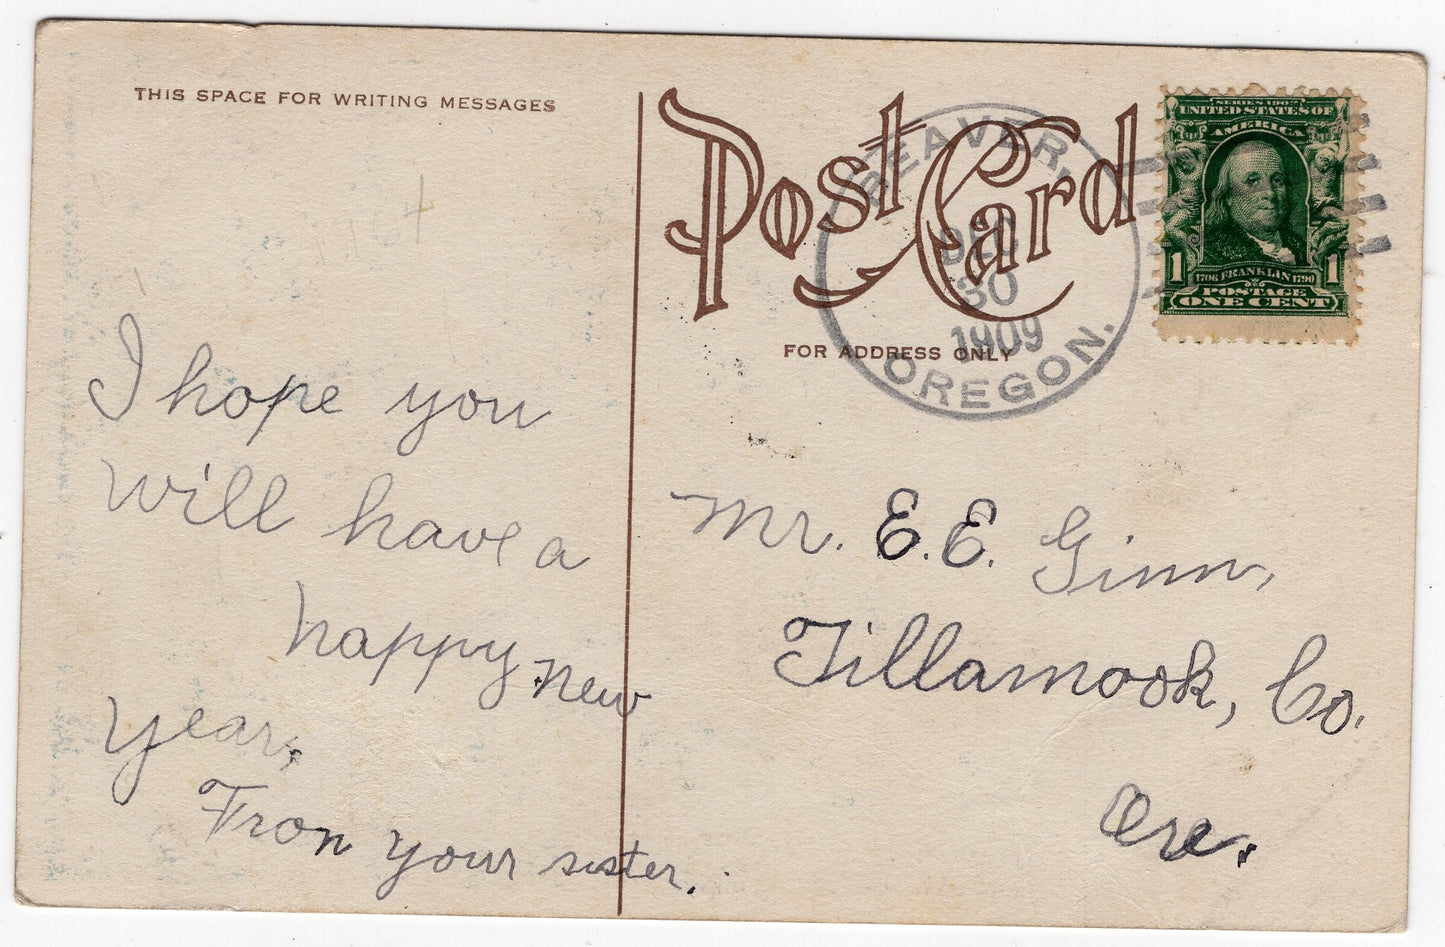 THIS SPACE FOR WRITING MESSAGES
I hope you
will have a
happy new
year,
Fron your sister.
Post Card
FOR ADDRESS ONLY
BEAVER,
DEC
30
1909
OREGON.
SERIES 1902
UNITED STATES OF
AMERICA
1 1706 FRANKLIN 1790 1
POSTAGE
ONE CENT
Mr. E. E. Ginn,
Tillamook, Co.
Ore.